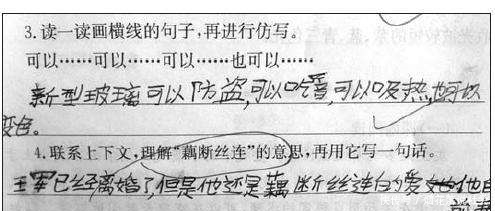 3.读一读画横线的句子,再进行仿写。
可以……可以……可以……也可以……
新型玻璃可以防盗,可以吃音,可以吸热,也可以
变色。
4.联系上下文,理解“藕断丝连”的意思,再用它写一句话。
王军已经离婚了,但是他还是藕断丝连的爱她自
前妻